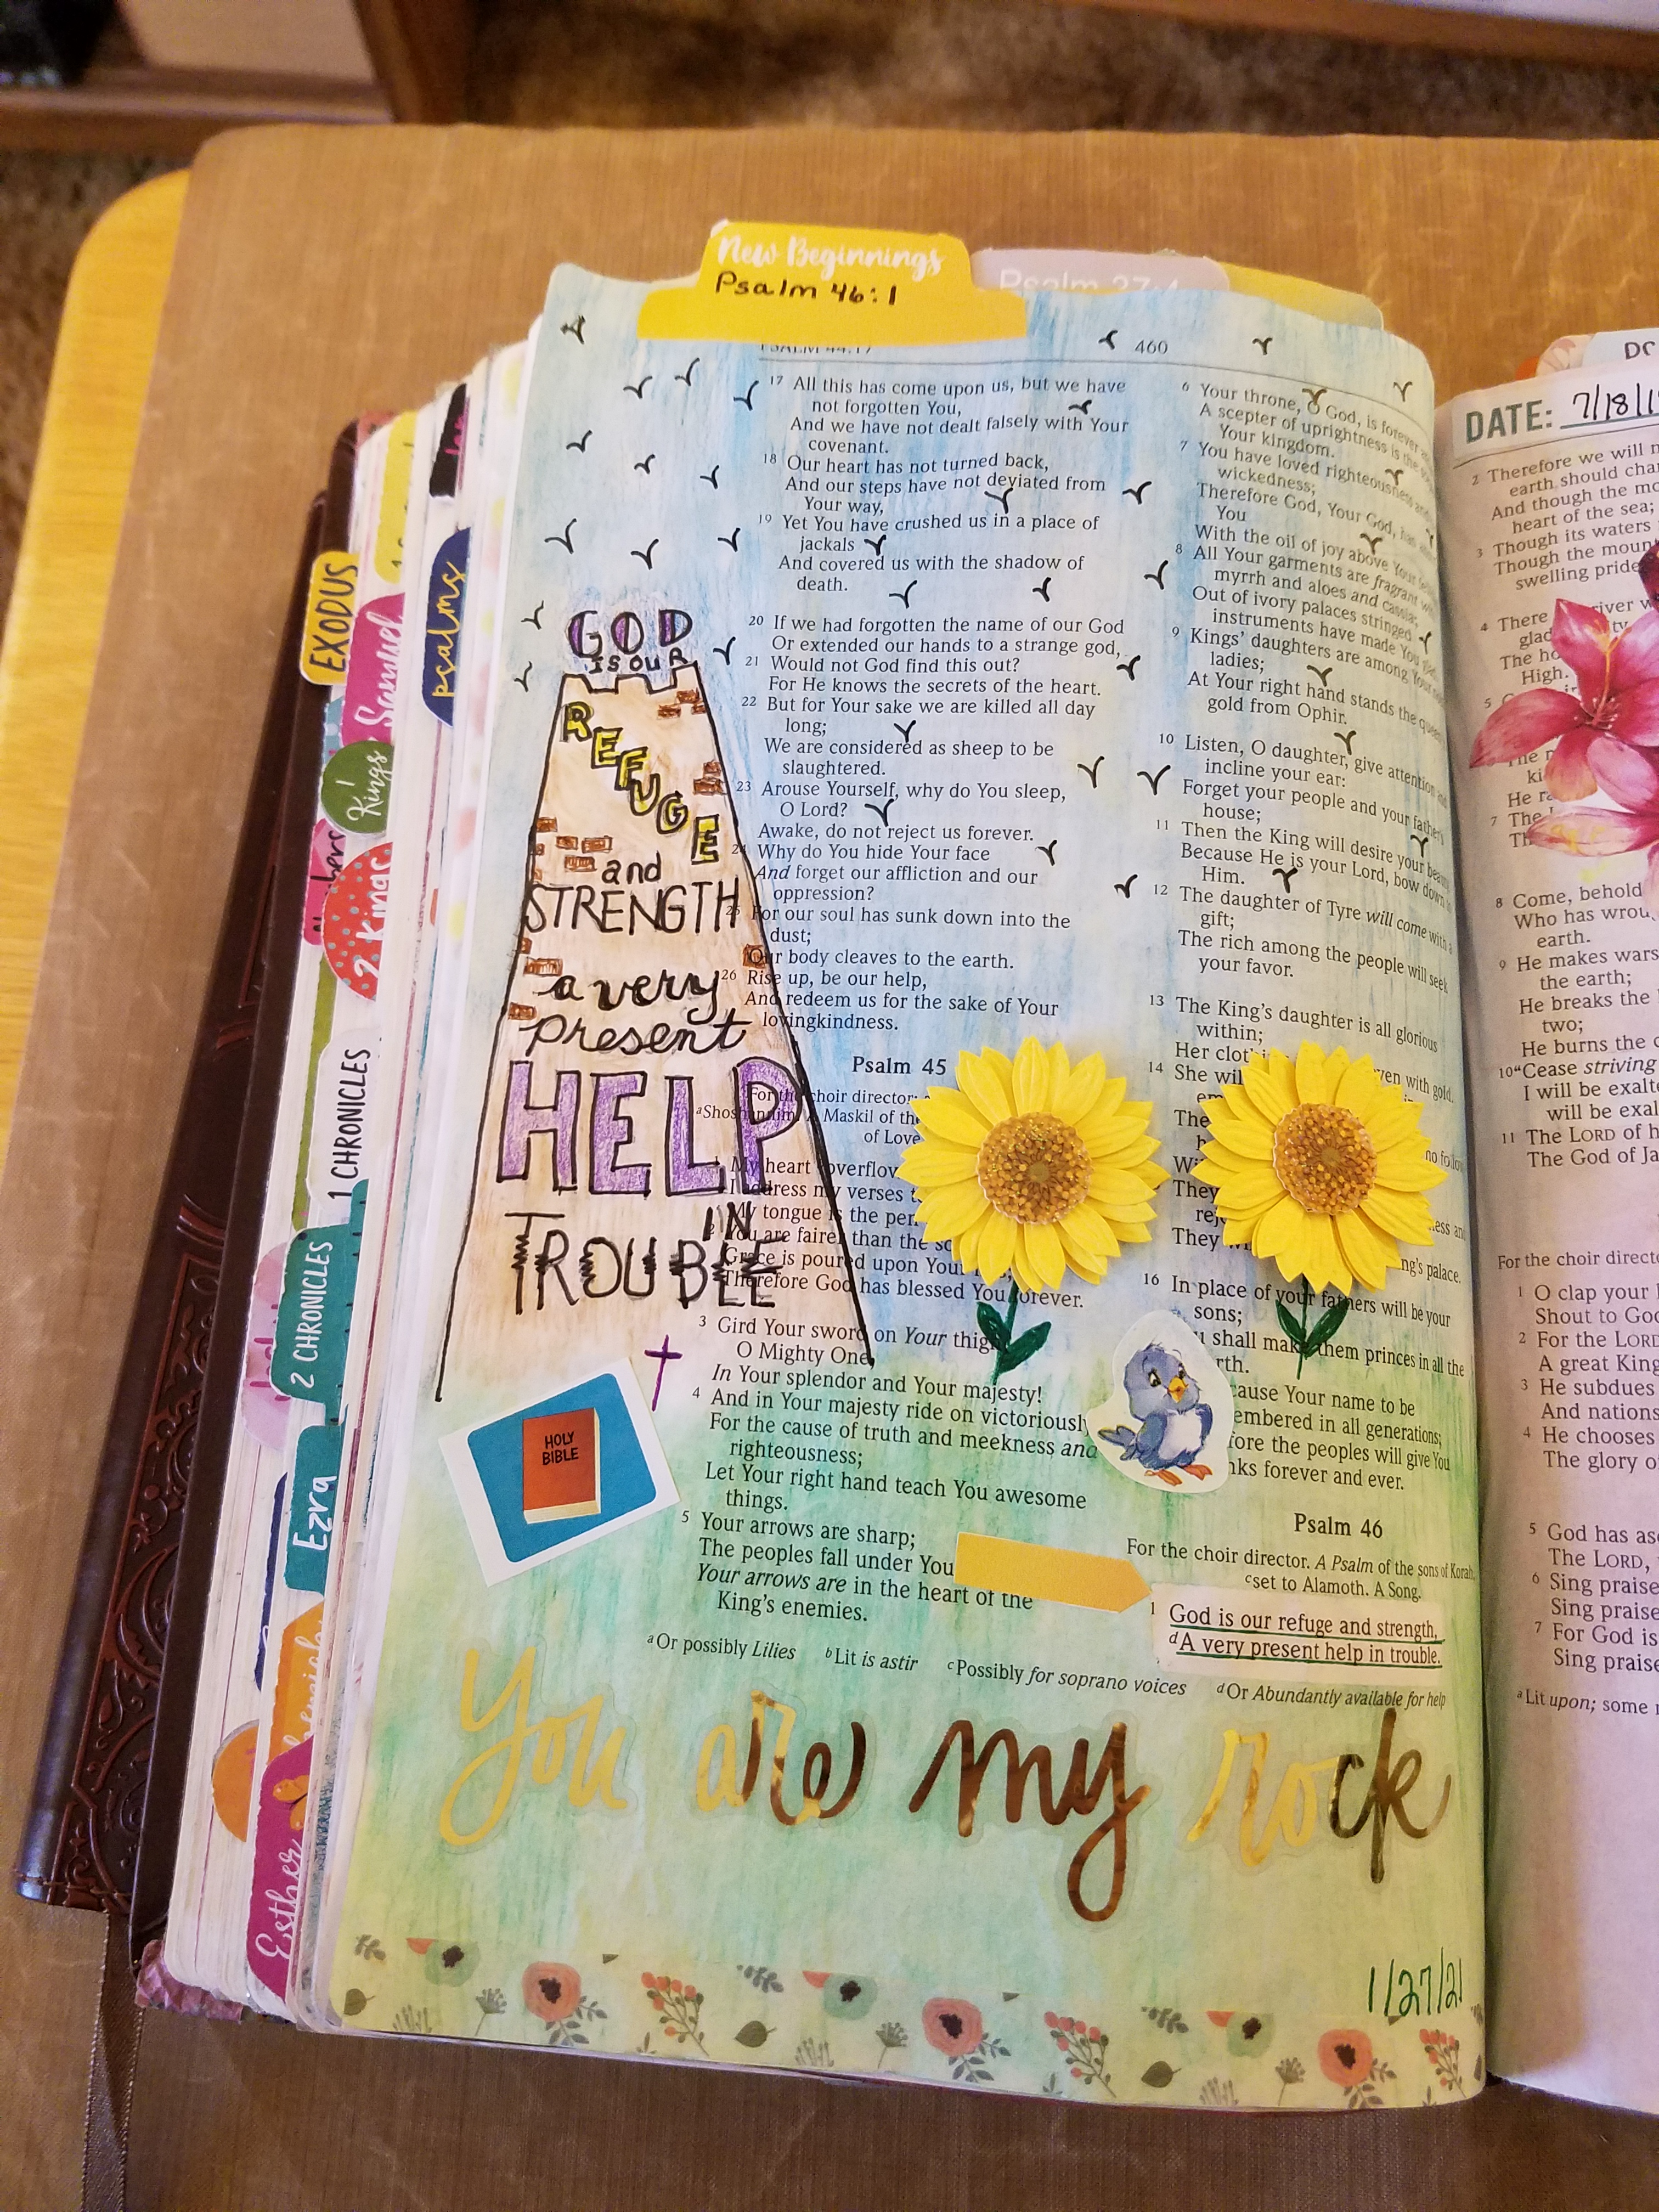 New Beginnings
Psalm 46:1
Psalm 27:4
PSALM 44:17
460
17 All this has come upon us, but we have
not forgotten You,
And we have not dealt falsely with Your
covenant.
18 Our heart has not turned back,
And our steps have not deviated from
Your way,
19 Yet You have crushed us in a place of
jackals
And covered us with the shadow of
death.
20 If we had forgotten the name of our God
Or extended our hands to a strange god,
21 Would not God find this out?
For He knows the secrets of the heart.
22 But for Your sake we are killed all day
long;
We are considered as sheep to be
slaughtered.
23 Arouse Yourself, why do You sleep,
O Lord?
Awake, do not reject us forever.
24 Why do You hide Your face
And forget our affliction and our
oppression?
25 For our soul has sunk down into the
dust;
Our body cleaves to the earth.
26 Rise up, be our help,
And redeem us for the sake of Your
lovingkindness.
Psalm 45
For the choir director;
aShoshannim. A Maskil of the
of Love
1 My heart overflow
I address my verses
My tongue is the pen
2 You are fairer than the so
Grace is poured upon Your
Therefore God has blessed You forever.
3 Gird Your sword on Your thigh
O Mighty One
In Your splendor and Your majesty!
4 And in Your majesty ride on victoriously
For the cause of truth and meekness and
righteousness;
Let Your right hand teach You awesome
things.
5 Your arrows are sharp;
The peoples fall under You
Your arrows are in the heart of the
King's enemies.
6 Your throne, O God, is forever
A scepter of uprightness is the
Your kingdom.
7 You have loved righteousness and
wickedness;
Therefore God, Your God, has
You
With the oil of joy above Your
8 All Your garments are fragrant
myrrh and aloes and cassia;
Out of ivory palaces stringed
instruments have made You
9 Kings' daughters are among Your
ladies;
At Your right hand stands the queen
gold from Ophir.
10 Listen, O daughter, give attention and
incline your ear:
Forget your people and your father's
house;
11 Then the King will desire your beauty
Because He is your Lord, bow down
Him.
12 The daughter of Tyre will come with a
gift;
The rich among the people will seek
your favor.
13 The King's daughter is all glorious
within;
Her cloth ven with gold.
14 She wil
em
The
no follow
Wi
They
rej ess and
They ng's palace.
16 In place of your fathers will be your
sons;
shall make them princes in all the
rth.
cause Your name to be
embered in all generations;
fore the peoples will give You
nks forever and ever.
Psalm 46
For the choir director. A Psalm of the sons of Korah,
cset to Alamoth. A Song.
1 God is our refuge and strength,
dA very present help in trouble.
aOr possibly Lilies bLit is astir cPossibly for soprano voices dOr Abundantly available for help
GOD
IS OUR
REFUGE
and
STRENGTH
a very
present
HELP
IN
TROUBLE
HOLY
BIBLE
You are my rock
1/27/21
EXODUS
Samuel
psalms
1 Kings
2 Kings
1 CHRONICLES
2 CHRONICLES
Ezra
Esther
DATE: 7/18/1
2 Therefore we will n
earth should cha
And though the mo
heart of the sea;
3 Though its waters
Though the moun
swelling pride
4 There river w
glad
The ho
High.
ki
He ra
7 The
Th
8 Come, behold
Who has wrou
earth.
9 He makes wars
the earth;
He breaks the
two;
He burns the c
10 “Cease striving
I will be exalte
will be exal
11 The LORD of h
The God of Ja
For the choir directo
1 O clap your
Shout to God
2 For the LORD
A great King
3 He subdues
And nations
4 He chooses
The glory o
5 God has asc
The LORD,
6 Sing praise
Sing praise
7 For God is
Sing praise
aLit upon; some